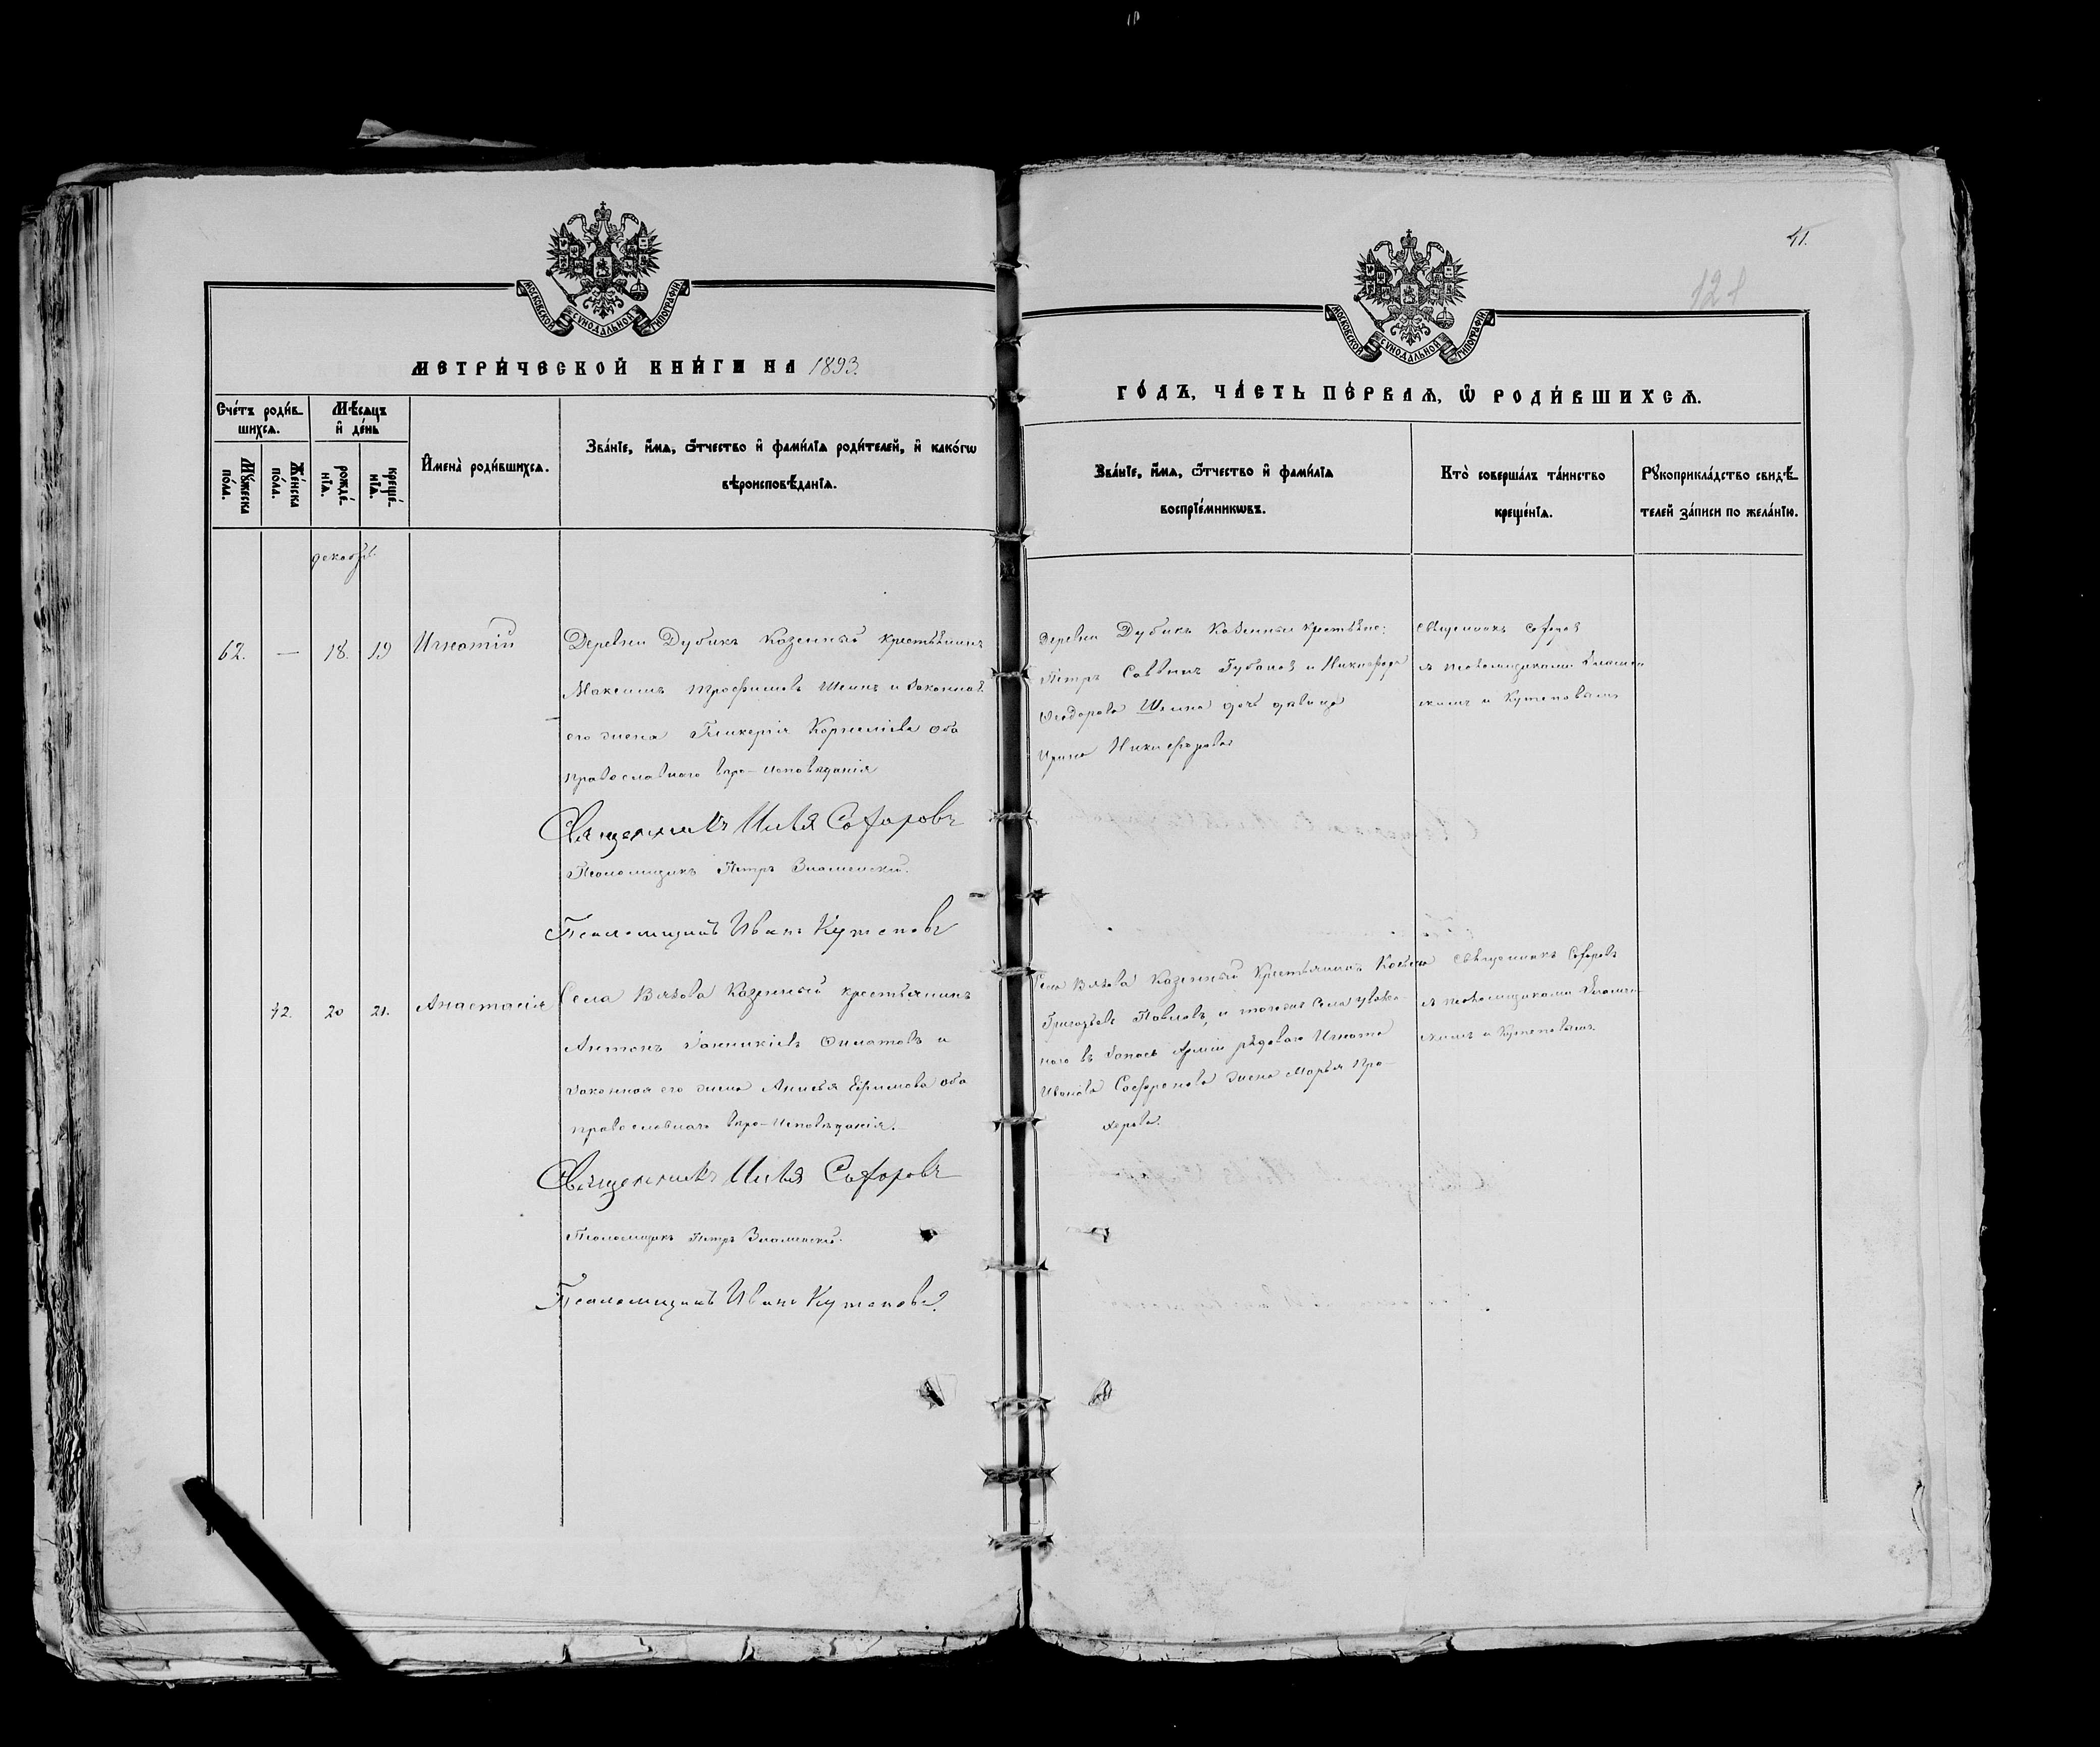 МОСКОВСКОЙ СѴНОДАЛЬНОЙ ТИПОГРАФІИ
МЕТРИ́ЧЕСКОЙ КНИ́ГИ НА 1893.
Сче́тъ роди́в-
шихсѧ.
Мѣ́сѧцъ
и҆ де́нь
Мꙋ́жеска
по́ла.
Же́нска
по́ла.
рожде́-
нїѧ.
креще́-
нїѧ.
И҆мена̀ роди́вшихсѧ.
Зва́нїе, и҆́мѧ, ѻ҆́тчество и҆ фами́лїѧ роди́телей, и҆ како́гѡ
вѣроисповѣ́данїѧ.
декабрь
62. — 18. 19 Игнатій
Деревни Дубикъ Казенный крестьянинъ
Максимъ Трофимовъ Шеинъ и законная
его жена Гликерія Корнеліева оба
православнаго вѣро-исповѣданія
Священникъ Илья Софоровъ
Псаломщикъ Петръ Знаменскій.
Псаломщикъ Иванъ Кутеповъ
42. 20 21. Анастасія
Села Вязова Казенный крестьянинъ
Антонъ Іанникіевъ Филатовъ и
законная его жена Анисья Ефимова оба
православнаго вѣро-исповѣданія.
Священникъ Илья Софоровъ
Псаломщикъ Петръ Знаменскій.
Псаломщикъ Иванъ Кутеповъ.
41.
121
МОСКОВСКОЙ СѴНОДАЛЬНОЙ ТИПОГРАФІИ
ГО́ДЪ, ЧА́СТЬ ПЕ́РВАѦ, Ѽ РОДИ́ВШИХСѦ.
Зва́нїе, и҆́мѧ, ѻ҆́тчество и҆ фами́лїѧ
воспрїе́мникѡвъ.
Кто̀ соверша́лъ та́инство
креще́нїѧ.
Рꙋкоприкла́дство свидѣ́-
телей за́писи по жела́нїю.
Деревни Дубикъ Казенный крестьянинъ
Петръ Саввинъ Губановъ и Никифора
Ѳеодорова Шеина дочь дѣвица
Ирина Никифорова
Священникъ Софоровъ
съ псаломщиками Знамен-
скимъ и Кутеповымъ
Села Вязова Казенный Крестьянинъ
Григорьевъ Павловъ, и тогоже Села уволен-
наго въ запасъ Арміи рядоваго Игната
Иванова Сафронова жена Марья Про-
хорова.
Священникъ Софоровъ
съ псаломщиками Знамен-
скимъ и Кутеповымъ.